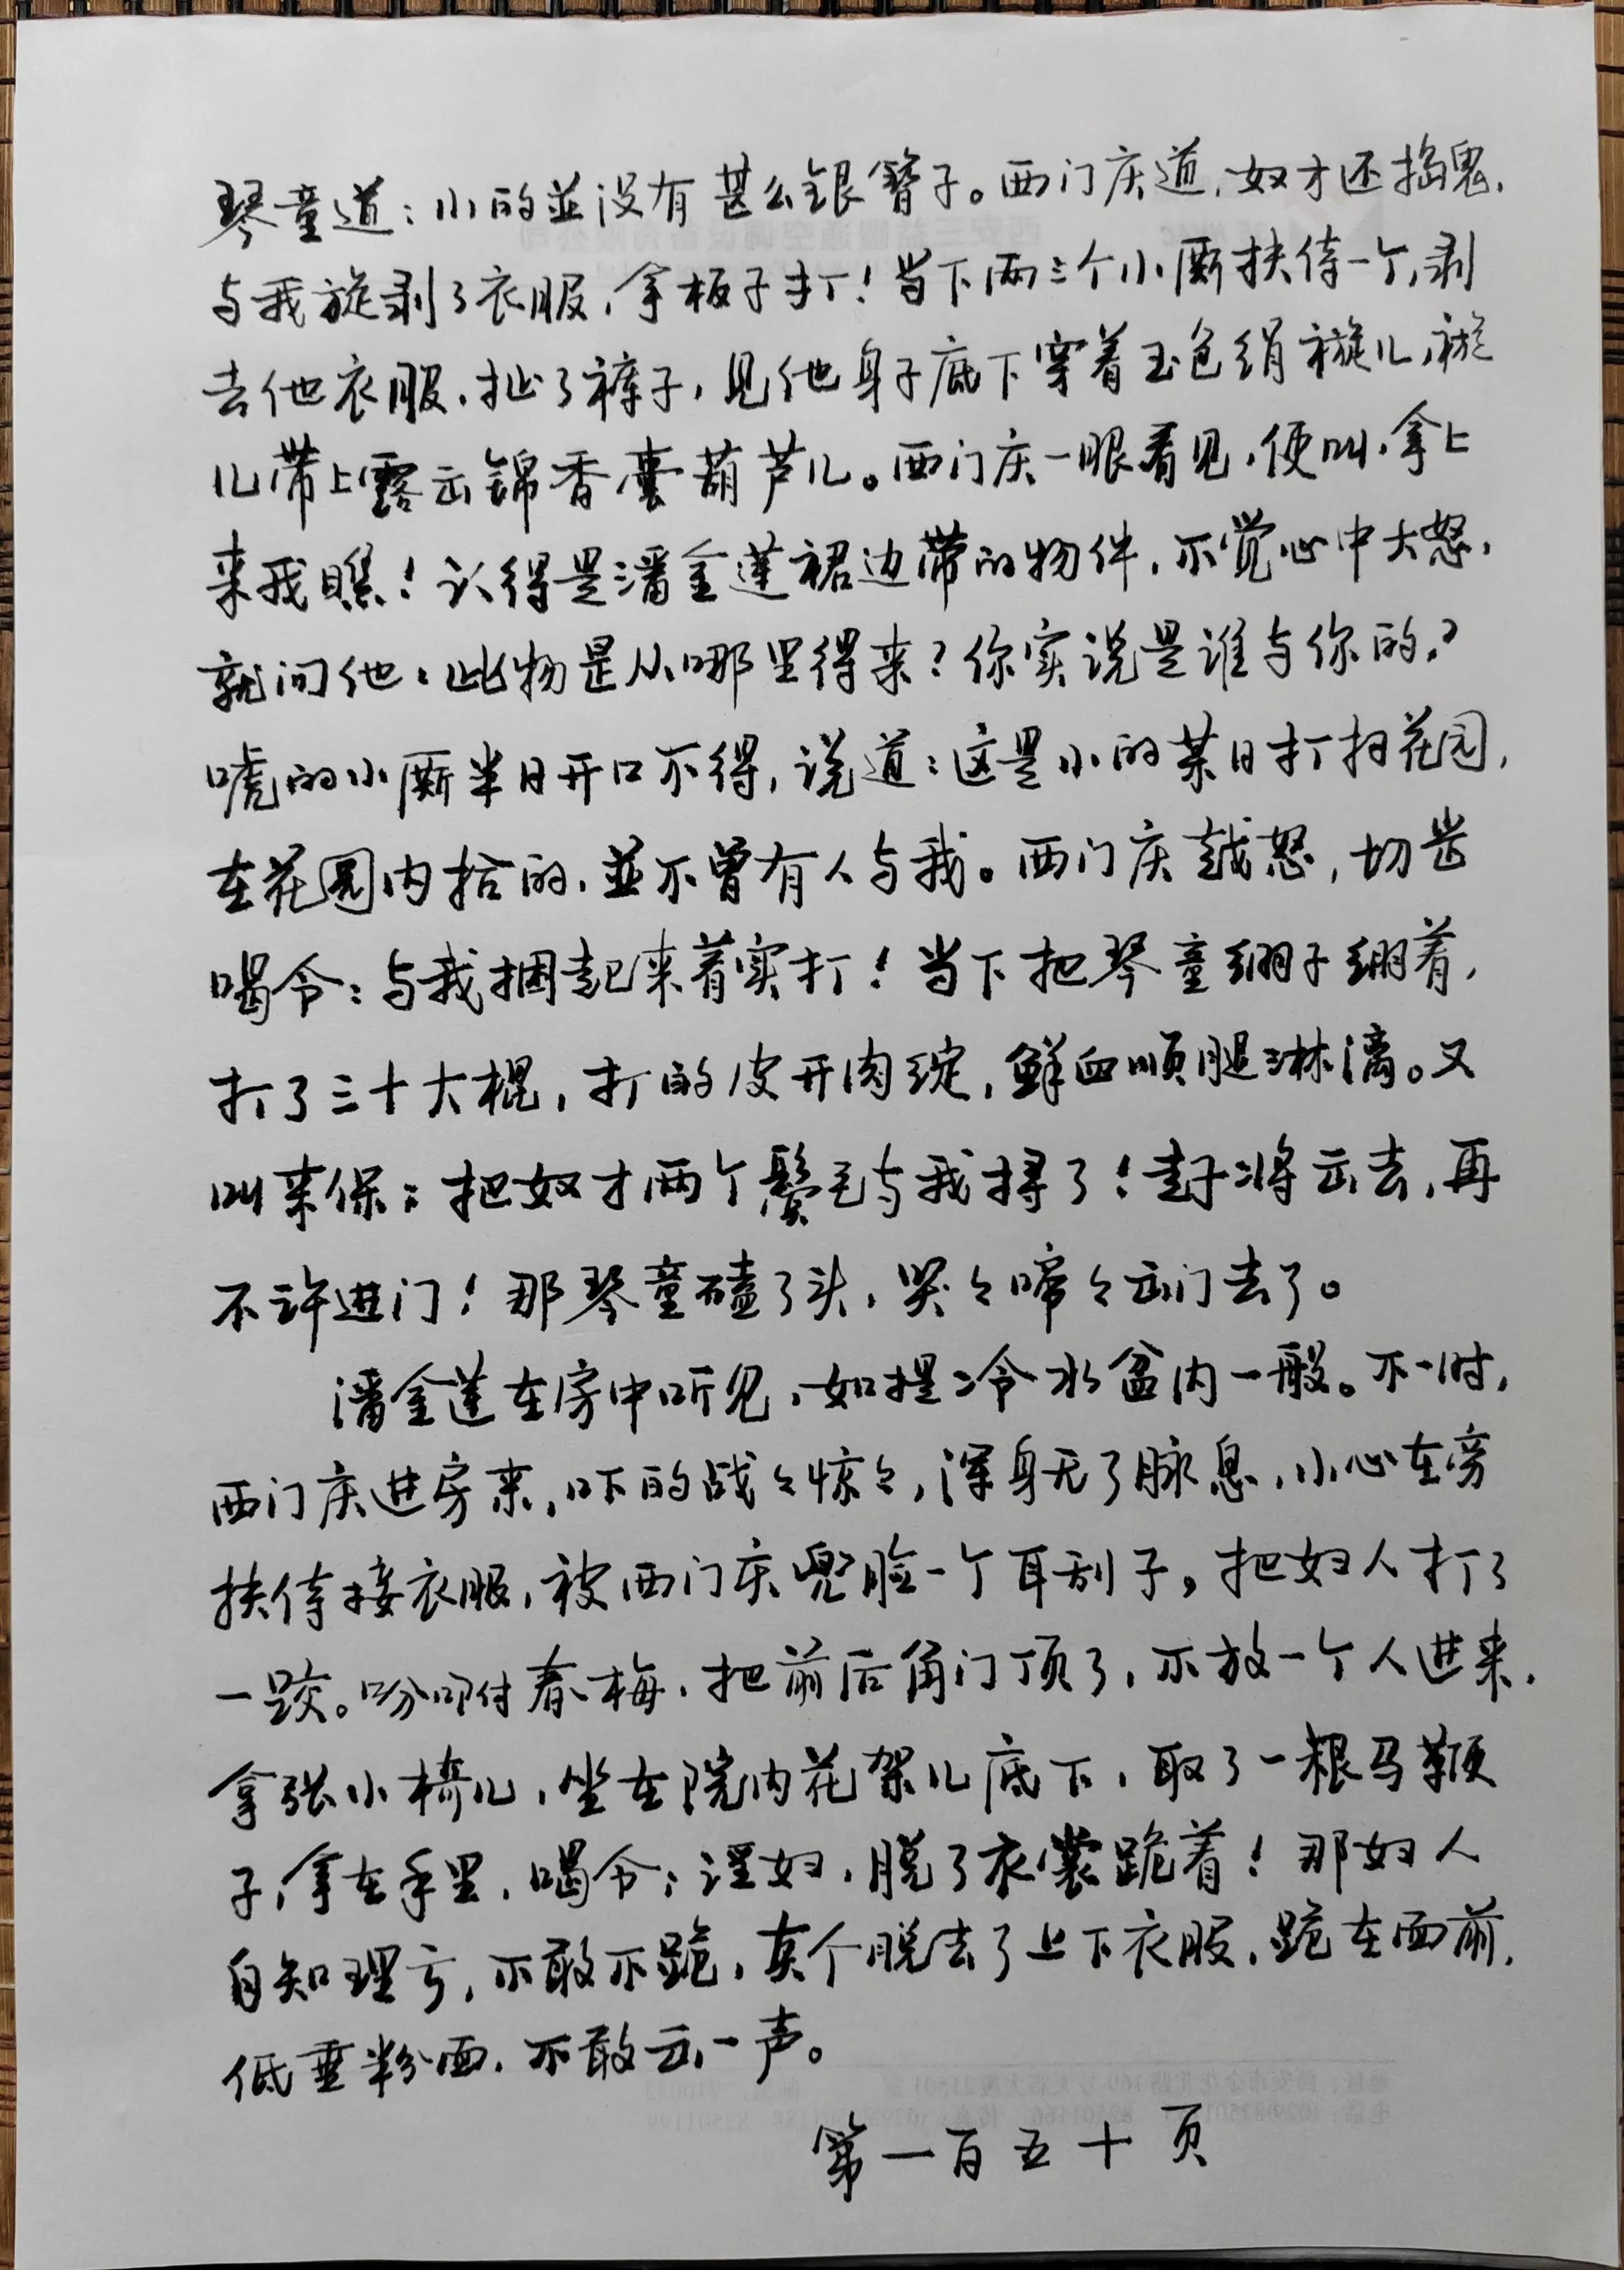 琴童道：小的並没有甚么银簪子。西门庆道，奴才还捣鬼，
与我旋剥了衣服，拿板子打！当下两三个小厮扶侍一个，剥
去他衣服，扯了裤子，见他身子底下穿着玉色绢䙋儿，䙋
儿带上露出锦香囊葫芦儿。西门庆一眼看见，便叫，拿上
来我瞧！认得是潘金莲裙边带的物件，不觉心中大怒，
就问他：此物是从哪里得来？你实说是谁与你的？
唬的小厮半日开口不得，说道：这是小的某日打扫花园，
在花园内拾的，並不曾有人与我。西门庆越怒，切齿
喝令：与我捆起来着实打！当下把琴童绷子绷着，
打了三十大棍，打的皮开肉绽，鲜血顺腿淋漓。又
叫来保：把奴才两个鬓毛与我挦了！赶将出去，再
不许进门！那琴童磕了头，哭々啼々出门去了。
潘金莲在房中听见，如提冷水盆内一般。不一时，
西门庆进房来，吓的战々惊々，浑身无了脉息，小心在旁
扶侍接衣服，被西门庆兜脸一个耳刮子，把妇人打了
一跤。吩咐付春梅，把前后角门顶了，不放一个人进来，
拿张小椅儿，坐在院内花架儿底下，取了一根马鞭
子，拿在手里，喝令：淫妇，脱了衣裳跪着！那妇人
自知理亏，不敢不跪，真个脱去了上下衣服，跪在面前，
低垂粉面，不敢出一声。
第一百五十页